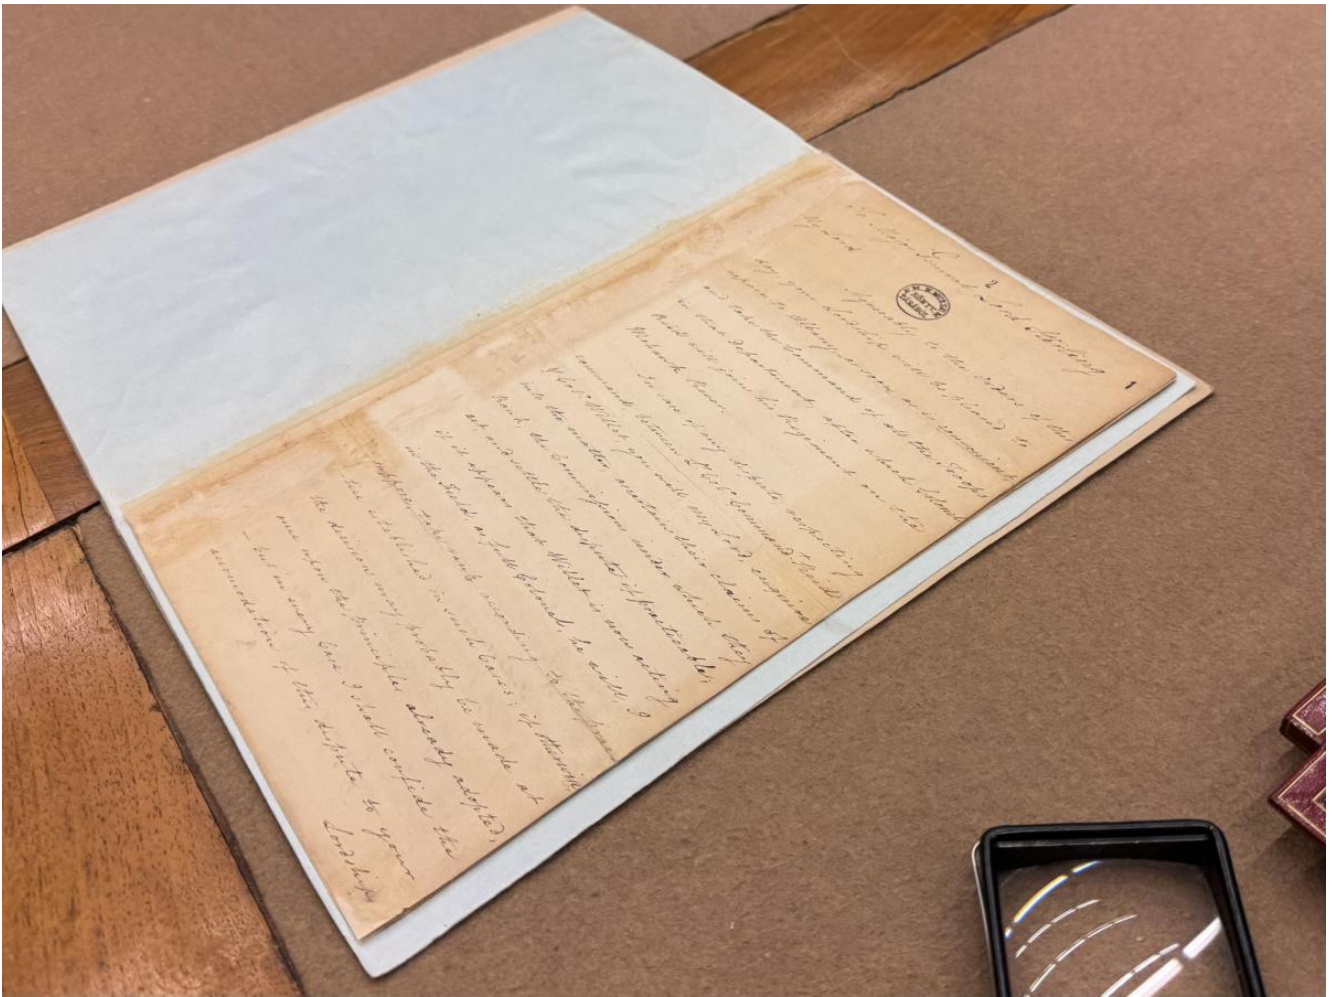 2
To Major General Lord Stirling
1
My Lord
Agreeably to the orders of the
day your Lordship will be pleased to
repair to Albany as soon as is convenient
and take the Command of all the Troops
in that Department, after which Colonel
will join his Regiment on the
Mohawk River.
In case of any dispute respecting
command between Lt Col. Commandant
& Col. Willet, you will my Lord enquire
into the matter, ascertain their claims of
rank, the Commissions under which they
act and settle the dispute if practicable;
if it appears that Willet is now acting
in the Field, as full Colonel, he will, I
suppose take rank according to the prac-
tice established in such Cases; if otherwise
the decision may probably be made at
once upon the principles already adopted,
- but in every Case I shall confide the
accomodation of this dispute to your
Lordship